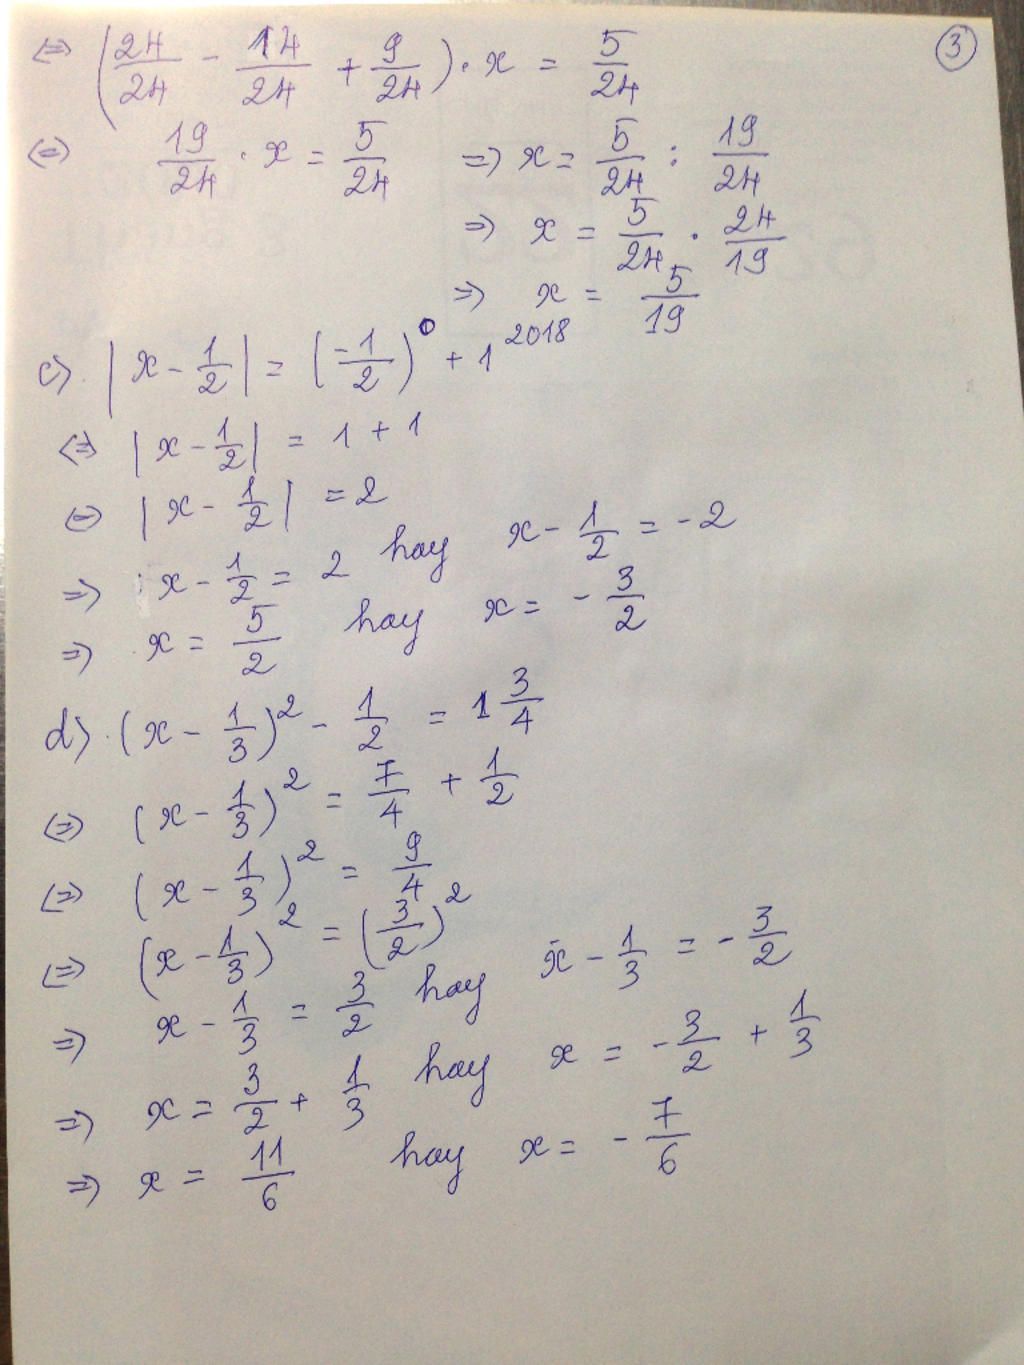 ③
⇔ (24/24 - 14/24 + 9/24) . x = 5/24
⇔ 19/24 . x = 5/24 ⇒ x = 5/24 : 19/24
⇒ x = 5/24 . 24/19
⇒ x = 5/19
c) |x - 1/2| = (-1/2)^0 + 1^2018
⇔ |x - 1/2| = 1 + 1
⇔ |x - 1/2| = 2
⇒ x - 1/2 = 2 hay x - 1/2 = -2
⇒ x = 5/2 hay x = -3/2
d) (x - 1/3)^2 - 1/2 = 1 3/4
⇔ (x - 1/3)^2 = 7/4 + 1/2
⇔ (x - 1/3)^2 = 9/4
⇔ (x - 1/3)^2 = (3/2)^2
⇒ x - 1/3 = 3/2 hay x - 1/3 = -3/2
⇒ x = 3/2 + 1/3 hay x = -3/2 + 1/3
⇒ x = 11/6 hay x = -7/6